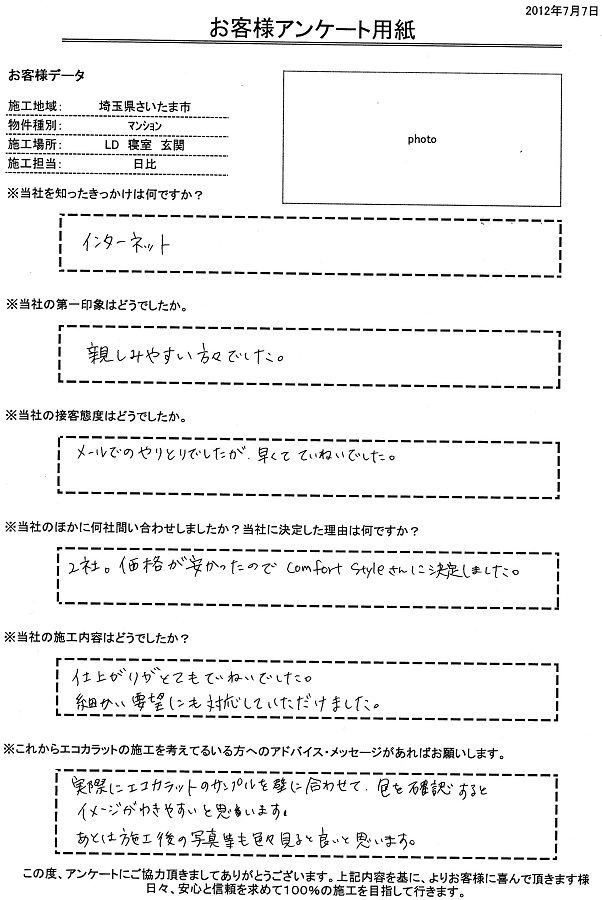 2012年7月7日
お客様アンケート用紙
お客様データ
施工地域: 埼玉県さいたま市
物件種別: マンション
施工場所: LD 寝室 玄関
施工担当: 日比
photo
※当社を知ったきっかけは何ですか?
インターネット
※当社の第一印象はどうでしたか。
親しみやすい方々でした。
※当社の接客態度はどうでしたか。
メールでのやりとりでしたが、早くて ていねいでした。
※当社のほかに何社問い合わせしましたか?当社に決定した理由は何ですか?
2社。価格が安かったので comfort styleさんに決定しました。
※当社の施工内容はどうでしたか?
仕上がりがとてもていねいでした。
細かい要望にも対応していただけました。
※これからエコカラットの施工を考えてるいる方へのアドバイス・メッセージがあればお願いします。
実際にエコカラットのサンプルを壁に合わせて、色を確認すると
イメージがわきやすいと思います。
あとは施工後の写真等も色々見ると良いと思います。
この度、アンケートにご協力頂きましてありがとうございます。上記内容を基に、よりお客様に喜んで頂きます様
日々、安心と信頼を求めて100%の施工を目指して行きます。